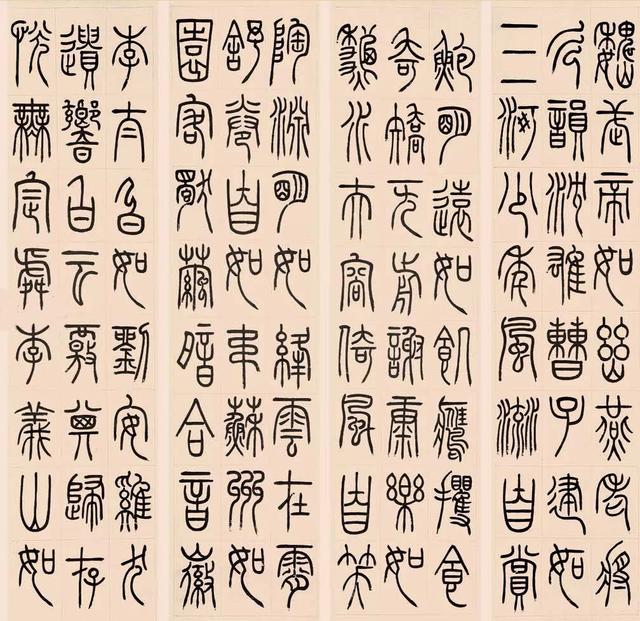 魏武帝如幽燕老將
气韻沈雄曹子建如
三河少年風流自賞
鮑明遠如飢鷹攫食
奇矯无前謝康樂如
秋水夫容倚風自笑
陶淵明如絳雲在霄
舒卷自如韋蘇州如
園客獨繭暗合音徽
李太白如劉安雞犬
遺響白云覈其歸存
恍無定處李義山如